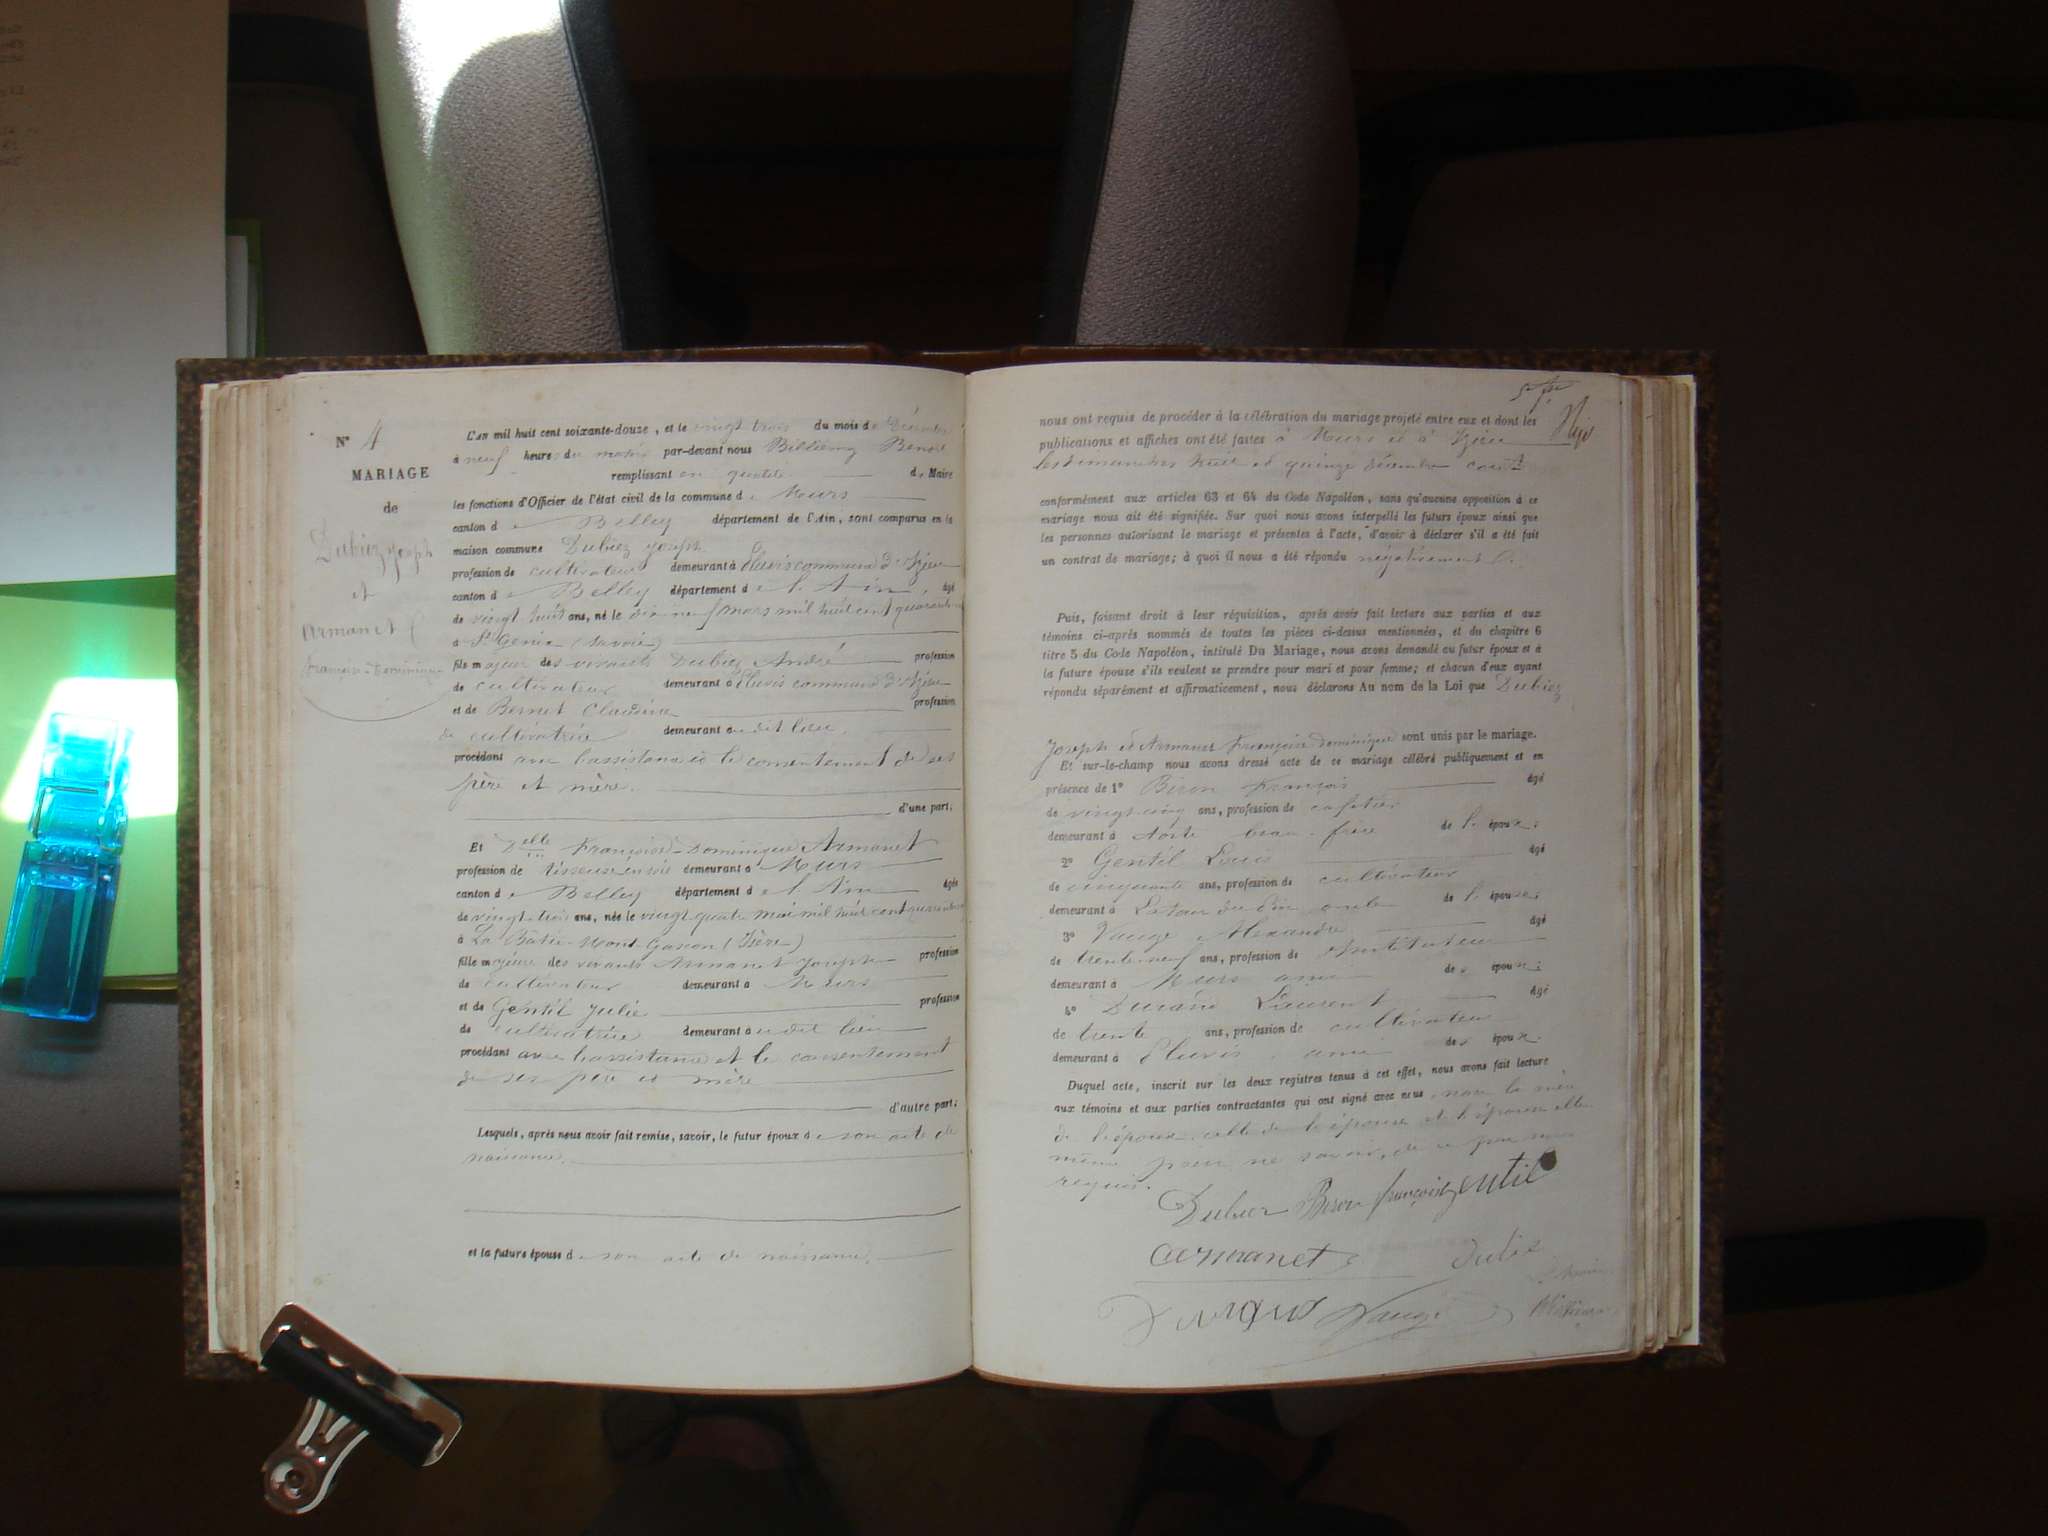 N° 4
MARIAGE
de
Dubiez Joseph
et
Armanet
Françoise-Dominique
L'an mil huit cent soixante-douze, et le vingt trois du mois de Décembre
à neuf heures du matin par-devant nous Billiémaz Benoit
remplissant en qualité de Maire
les fonctions d'Officier de l'état civil de la commune de Murs
canton de Belley département de l'Ain, sont comparus en la
maison commune Dubiez Joseph
profession de cultivateur demeurant à Fluvis commune d'Izieu
canton de Belley département de l'Ain, âgé
de vingt huit ans, né le dix neuf mars mil huit cent quarante
à St Genix (Savoie)
fils majeur des vivants Dubiez André profession
de cultivateur demeurant à Fluvis commune d'Izieu
et de Bernet Claudine profession
de cultivatrice demeurant au dit lieu,
procédant avec l'assistance et le consentement de ses
père et mère.
d'une part;
Et Delle Françoise-Dominique Armanet
profession de tisseuse en soie demeurant à Murs
canton de Belley département de l'Ain âgée
de vingt-trois ans, née le vingt quatre mai mil huit cent quarante
à La Bâtie-Mont-Gascon (Isère)
fille majeure des vivants Armanet Joseph profession
de cultivateur demeurant à Murs
et de Gentil Julie profession
de cultivatrice demeurant au dit lieu
procédant avec l'assistance et le consentement
de ses père et mère
d'autre part;
Lesquels, après nous avoir fait remise, savoir, le futur époux de son acte de
naissance.
et la future épouse de son acte de naissance.
nous ont requis de procéder à la célébration du mariage projeté entre eux et dont les
publications et affiches ont été faites à Murs et à Izieu
les dimanches huit et quinze décembre courant
conformément aux articles 63 et 64 du Code Napoléon, sans qu'aucune opposition à ce
mariage nous ait été signifiée. Sur quoi nous avons interpellé les futurs époux ainsi que
les personnes autorisant le mariage et présentes à l'acte, d'avoir à déclarer s'il a été fait
un contrat de mariage; à quoi il nous a été répondu négativement
Puis, faisant droit à leur réquisition, après avoir fait lecture aux parties et aux
témoins ci-après nommés de toutes les pièces ci-dessus mentionnées, et du chapitre 6
titre 5 du Code Napoléon, intitulé Du Mariage, nous avons demandé au futur époux et à
la future épouse s'ils veulent se prendre pour mari et pour femme; et chacun d'eux ayant
répondu séparément et affirmativement, nous déclarons Au nom de la Loi que Dubiez
Joseph et Armanet Françoise Dominique sont unis par le mariage.
Et sur-le-champ nous avons dressé acte de ce mariage célébré publiquement et en
présence de 1° Biron François âgé
de vingt-cinq ans, profession de cafetier
demeurant à Aoste beau-frère de l'époux;
2° Gentil Louis âgé
de cinquante ans, profession de cultivateur
demeurant à Latour du Pin oncle de l'épouse;
3° Vauge Alexandre âgé
de trente-neuf ans, profession de instituteur
demeurant à Murs ami des époux;
4° Durand Laurent âgé
de trente ans, profession de cultivateur
demeurant à Fluvis, ami des époux.
Duquel acte, inscrit sur les deux registres tenus à cet effet, nous avons fait lecture
aux témoins et aux parties contractantes qui ont signé avec nous, non la mère
de l'époux, celle de l'épouse et l'épouse elle
même pour ne savoir, de ce par nous
requis.
Dubiez Biron françois gentil
armanet
Vauge